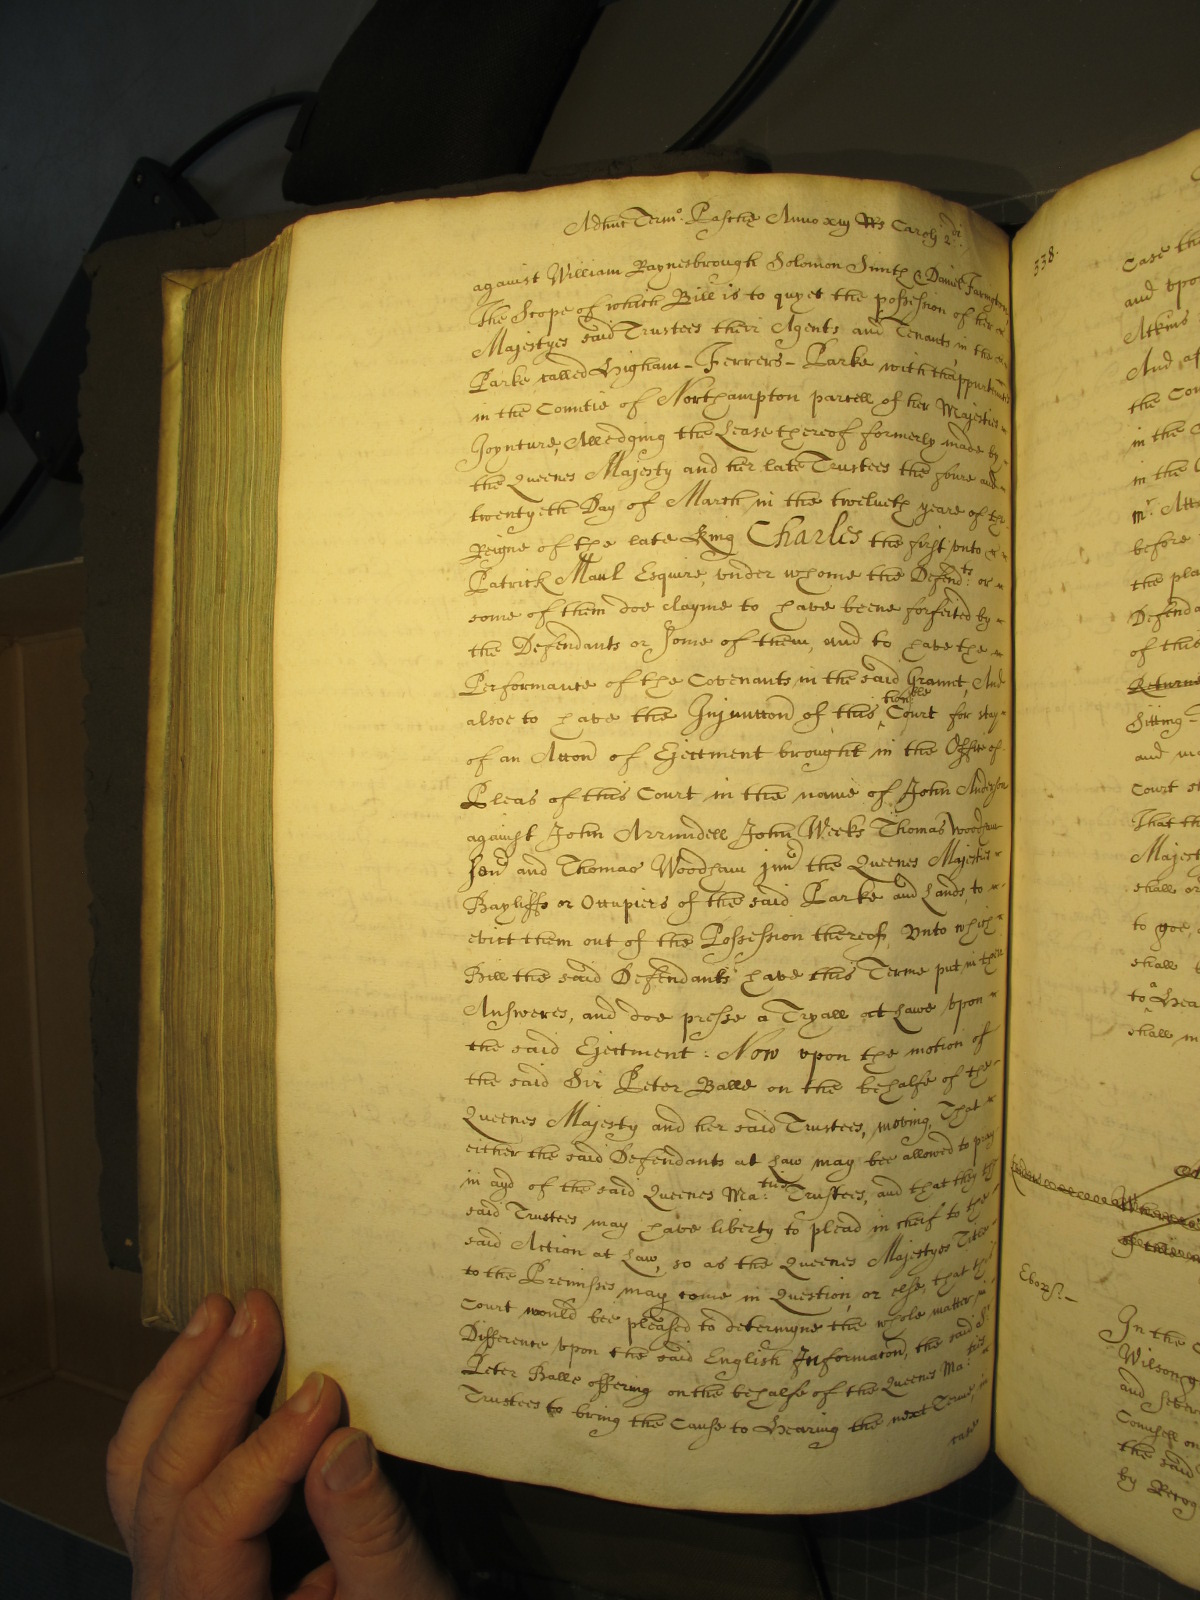 Adhuc Termo. Paschę Anno xiij Rs Caroli 2di.
against William Raynesbrough Solomon Smith & Daniel Farmington
The Scope of which Bill is to quyet the possession of her
Majestyes said Trustees their Agents and Tenants in the
Parke called Higham-Ferrers-Parke with thappurtennces
in the Countie of Northampton parcell of her Majesties
Joynture, Alledging the Lease thereof formerly made by
the Queenes Majesty and her late Trustees the foure and
twentyeth Day of March in the twelueth yeare of the
Reigne of the late King Charles the first vnto
Patrick Maul Esquire, vnder whome the Defendts. or
some of them doe clayme to have beene forfeited by
the Defendants or some of them, and to have the
Performance of the Covenants in the said Graunt, And
alsoe to have the Injunccon of this Court for stay
of an Accon of Ejectment brought in the Office of
Pleas of this Court in the name of John Anderson
against John Arrundell John Weeks Thomas Woodham
senr and Thomas Woodham junr the Queenes Majesties
Bayliffs or Occupiers of the said Parke and Lands, to
evict them out of the Possession thereof, Vnto which
Bill the said Defendants have this Terme put in their
Answeres, and doe presse a Tryall at Lawe vpon
the said Ejectment: Now vpon the motion of
the said Sir Peter Balle on the behalfe of the
Queenes Majesty and her said Trustees, moving, That
either the said Defendants at Law may bee allowed to pray
in ayd of the said Queenes Ma:ties Trustees, and that they the
said Trustees may have liberty to plead in cheif to the
said Action at Law, so as the Queenes Majestyes Title
to the Premisses may come in Question, or else, that this
Court would bee pleased to determyne the whole matter in
Difference vpon the said English Informacon, the said Sr.
Peter Balle offering on the behalfe of the Queenes Ma:ties
Trustees to bring the Cause to Hearing the next Terme, in
case
338.
Case th
and vpo
Atkins
And af
the Cou
in the C
in the
mr. Att
before
the pla
Defenda
of this
Returne
Sitting-
and mo
Court st
That th
Majest
shall or
to goe,
shall
to a Hea
shall m
Ebor̃s.-
In the C
Wilson g
and sever
Counsell on
the said
by Recog